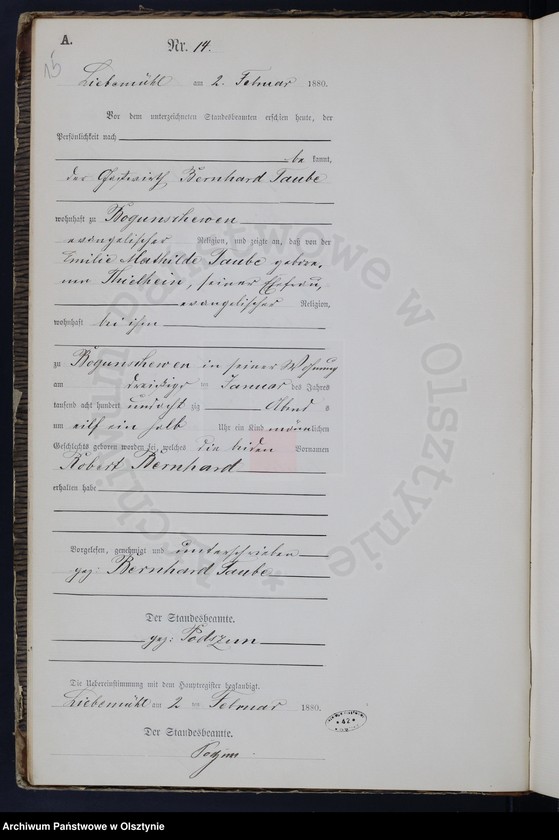 A.
Nr. 14.
15
Liebemühl am 2. Februar 1880.
Vor dem unterzeichneten Standesbeamten erschien heute, der
Persönlichkeit nach
be kannt,
der Gastwirth Bernhard Taube
wohnhaft zu Bogunschewen
evangelischer Religion, und zeigte an, daß von der
Emilie Mathilde Taube gebore,
nen Thielhein, seiner Ehefrau,
evangelischer Religion,
wohnhaft bei ihm
zu Bogunschewen in seiner Wohnung
am dreißigs ten Januar des Jahres
tausend acht hundert undacht zig Abend s
um eilf ein halb Uhr ein Kind männlichen
Geschlechts geboren worden sei, welches die beiden Vornamen
Robert Bernhard
erhalten habe
Vorgelesen, genehmigt und unterschrieben
gez: Bernhard Taube
Der Standesbeamte.
gez: Podszun
Die Uebereinstimmung mit dem Hauptregister beglaubigt.
Liebemühl am 2 ten Februar 1880.
Der Standesbeamte.
Podszun
42
Archiwum Państwowe w Olsztynie
Archiwum Państwowe w Olsztynie